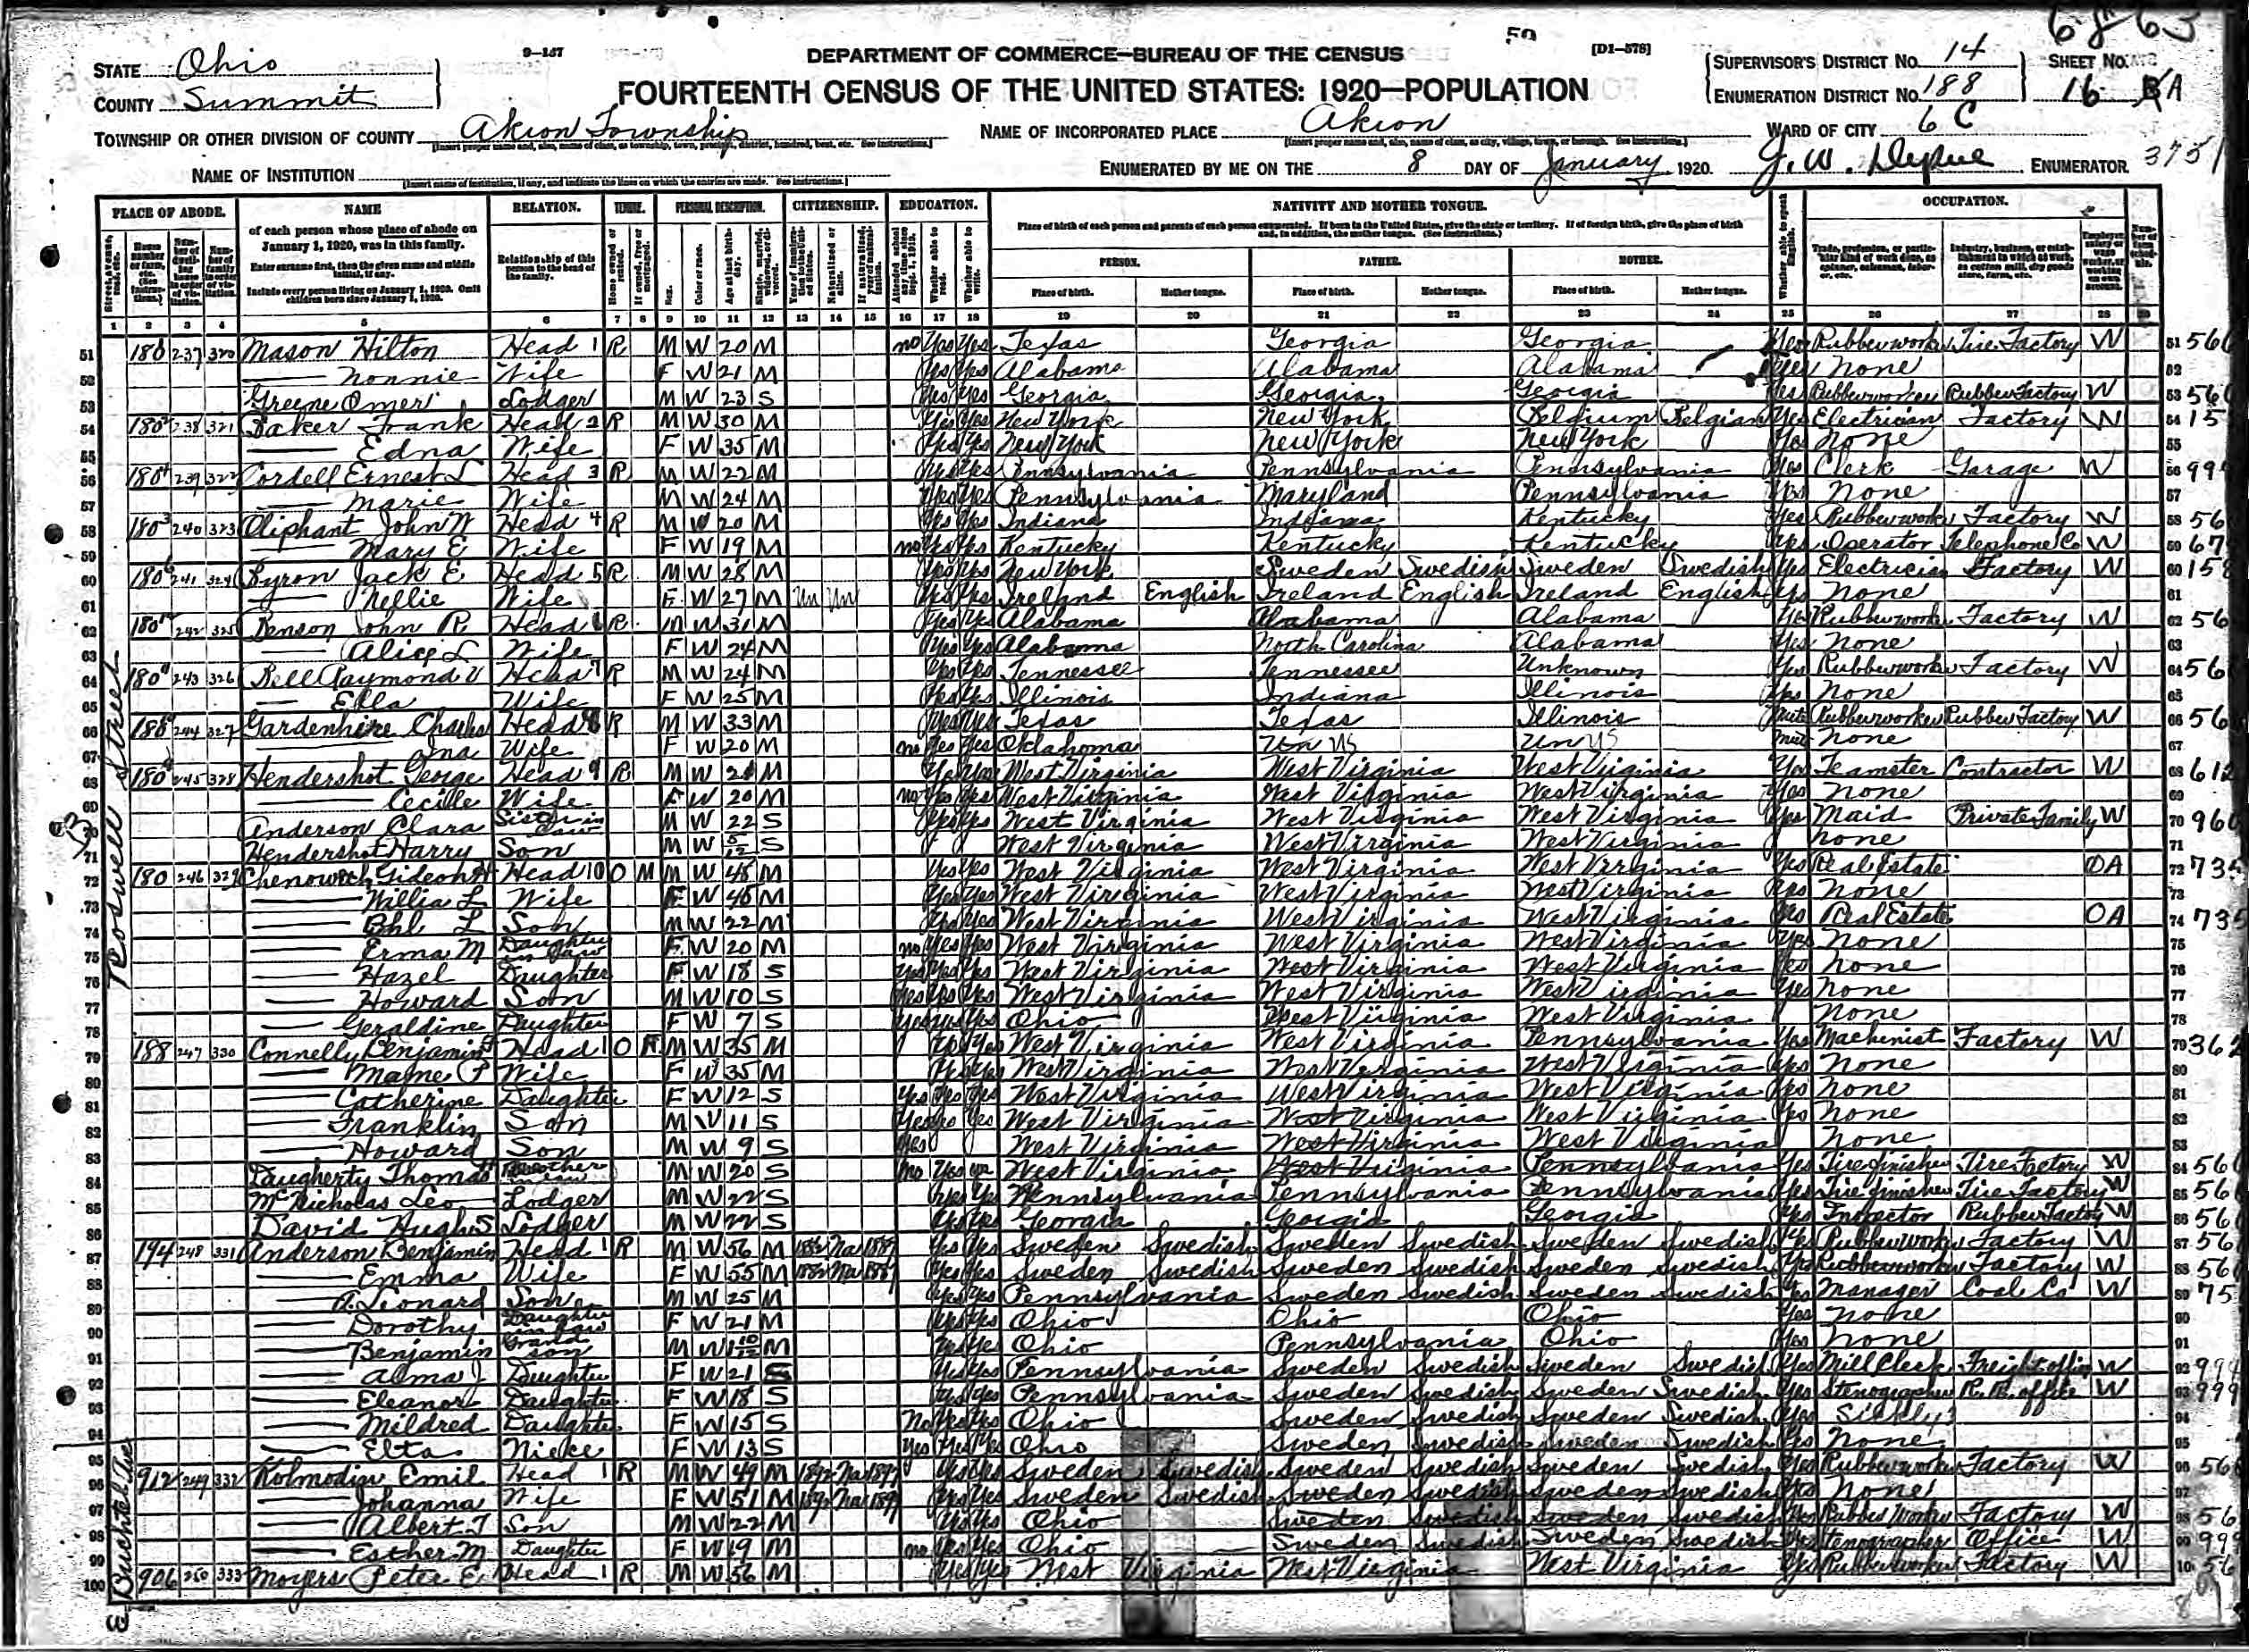 59
68 63
9-137 DEPARTMENT OF COMMERCE—BUREAU OF THE CENSUS [D1-578]
STATE Ohio
COUNTY Summit
FOURTEENTH CENSUS OF THE UNITED STATES: 1920—POPULATION
SUPERVISOR'S DISTRICT No. 14 SHEET No.
ENUMERATION DISTRICT No. 188 16 A
TOWNSHIP OR OTHER DIVISION OF COUNTY Akron Township NAME OF INCORPORATED PLACE Akron WARD OF CITY 6 C
NAME OF INSTITUTION ENUMERATED BY ME ON THE 8 DAY OF January, 1920. J. W. ENUMERATOR 3751
PLACE OF ABODE. NAME RELATION. TENURE. PERSONAL DESCRIPTION. CITIZENSHIP. EDUCATION. NATIVITY AND MOTHER TONGUE. OCCUPATION.
of each person whose place of abode on January 1, 1920, was in this family.
Enter surname first, then the given name and middle initial, if any.
Include every person living on January 1, 1920. Omit children born since January 1, 1920.
Relationship of this person to the head of the family.
Place of birth of each person and parents of each person enumerated. If born in the United States, give the state or territory. If of foreign birth, give the place of birth and, in addition, the mother tongue. (See Instructions.)
PERSON. FATHER. MOTHER.
Place of birth. Mother tongue. Place of birth. Mother tongue. Place of birth. Mother tongue.
1 2 3 4 5 6 7 8 9 10 11 12 13 14 15 16 17 18 19 20 21 22 23 24 25 26 27 28 29
51 180 237 320 Mason Hilton Head 1 R M W 20 M no Yes Yes Texas Georgia Georgia Yes Rubberworker Tire Factory W 51
52 — Nonnie Wife F W 21 M Yes Yes Alabama Alabama Alabama Yes None 52
53 Greene Omer Lodger M W 23 S Yes Yes Georgia Georgia Georgia Yes Rubberworker Rubber Factory W 53
54 180 238 321 Baker Frank Head 2 R M W 30 M Yes Yes New York New York Belgium Belgian Yes Electrician Factory W 54
55 — Edna Wife F W 35 M Yes Yes New York New York New York Yes None 55
56 180 239 322 Cordell Ernest L Head 3 R M W 22 M Yes Yes Pennsylvania Pennsylvania Pennsylvania Yes Clerk Garage W 56
57 — Marie Wife M W 24 M Yes Yes Pennsylvania Maryland Pennsylvania Yes None 57
58 180 240 323 Oliphant John W Head 4 R M W 20 M Yes Yes Indiana Indiana Kentucky Yes Rubberworker Factory W 58
59 — Mary E Wife F W 19 M no Yes Yes Kentucky Kentucky Kentucky Yes Operator Telephone Co W 59
60 180 241 324 Byron Jack E Head 5 R M W 28 M Yes Yes New York Sweden Swedish Sweden Swedish Yes Electrician Factory W 60
61 — Nellie Wife F W 27 M Un Un Yes Yes Ireland English Ireland English Ireland English Yes None 61
62 180 242 325 Benson John R Head 6 R M W 31 M Yes Yes Alabama Alabama Alabama Yes Rubberworker Factory W 62
63 — Alice L Wife F W 24 M Yes Yes Alabama North Carolina Alabama Yes None 63
64 180 243 326 Bell Raymond V Head 7 R M W 24 M Yes Yes Tennessee Tennessee Unknown Yes Rubberworker Factory W 64
65 — Ella Wife F W 25 M Yes Yes Illinois Indiana Illinois Yes None 65
66 180 244 327 Gardenhire Charles Head 8 R M W 33 M Yes Yes Texas Texas Illinois Mute Rubberworker Rubber Factory W 66
67 — Ina Wife F W 20 M no Yes Yes Oklahoma Un US Un US Mute None 67
68 180 245 328 Hendershot George Head 9 R M W 21 M Yes Yes West Virginia West Virginia West Virginia Yes Teamster Contractor W 68
69 — Cecille Wife F W 20 M no Yes Yes West Virginia West Virginia West Virginia Yes None 69
70 Anderson Clara Sister in law M W 22 S Yes Yes West Virginia West Virginia West Virginia Yes Maid Private Family W 70
71 Hendershot Harry Son M W 5/12 S West Virginia West Virginia West Virginia None 71
72 180 246 329 Chenoweth Gideon H Head 10 O M M W 45 M Yes Yes West Virginia West Virginia West Virginia Yes Real Estate OA 72
73 — Willia L Wife F W 46 M Yes Yes West Virginia West Virginia West Virginia Yes None 73
74 — Bhl L Son M W 22 M Yes Yes West Virginia West Virginia West Virginia Yes Real Estate OA 74
75 — Erma M Daughter in law F W 20 M no Yes Yes West Virginia West Virginia West Virginia Yes None 75
76 — Hazel Daughter F W 18 S Yes Yes Yes West Virginia West Virginia West Virginia Yes None 76
77 — Howard Son M W 10 S Yes Yes Yes West Virginia West Virginia West Virginia Yes None 77
78 — Geraldine Daughter F W 7 S Yes Yes Yes Ohio West Virginia West Virginia None 78
79 188 247 330 Connelly Benjamin F Head 1 O M W 35 M Yes Yes West Virginia West Virginia Pennsylvania Yes Machinist Factory W 79
80 — Mame P Wife F W 35 M Yes Yes West Virginia West Virginia West Virginia Yes None 80
81 — Catherine Daughter F W 12 S Yes Yes Yes West Virginia West Virginia West Virginia Yes None 81
82 — Franklin Son M W 11 S Yes Yes Yes West Virginia West Virginia West Virginia Yes None 82
83 — Howard Son M W 9 S Yes West Virginia West Virginia West Virginia None 83
84 Daugherty Thomas H Brother in law M W 20 S no Yes West Virginia West Virginia Pennsylvania Yes Tire finisher Tire Factory W 84
85 McNicholas Leo Lodger M W 22 S Yes Yes Pennsylvania Pennsylvania Pennsylvania Yes Tire finisher Tire Factory W 85
86 David Hugh S Lodger M W 22 S Yes Yes Georgia Georgia Georgia Yes Inspector Rubber Factory W 86
87 194 248 331 Anderson Benjamin Head 1 R M W 56 M 1882 Na 1889 Yes Yes Sweden Swedish Sweden Swedish Sweden Swedish Yes Rubberworker Factory W 87
88 — Emma Wife F W 55 M 1882 Na 1889 Yes Yes Sweden Swedish Sweden Swedish Sweden Swedish Yes Rubberworker Factory W 88
89 — A. Leonard Son M W 25 M Yes Yes Pennsylvania Sweden Swedish Sweden Swedish Yes Manager Coal Co W 89
90 — Dorothy Daughter in law F W 21 M Yes Yes Ohio Ohio Ohio Yes None 90
91 — Benjamin Grand son M W 1 10/12 M Yes Yes Ohio Pennsylvania Ohio Yes None 91
92 — Alma J Daughter F W 21 S Yes Yes Pennsylvania Sweden Swedish Sweden Swedish Yes Mill Clerk Freight office W 92
93 — Eleanor Daughter F W 18 S Yes Yes Pennsylvania Sweden Swedish Sweden Swedish Yes Stenographer R.R. office W 93
94 — Mildred Daughter F W 15 S No Yes Yes Ohio Sweden Swedish Sweden Swedish Yes Sickly 94
95 — Elta Niece F W 13 S Yes Yes Yes Ohio Sweden Swedish Sweden Swedish Yes None 95
96 912 249 332 Kolmodin Emil Head 1 R M W 49 M 1892 Na 1897 Yes Yes Sweden Swedish Sweden Swedish Sweden Swedish Yes Rubberworker Factory W 96
97 — Johanna Wife F W 51 M 1892 Na 1897 Yes Yes Sweden Swedish Sweden Swedish Sweden Swedish Yes None 97
98 — Albert T Son M W 22 M Yes Yes Ohio Sweden Swedish Sweden Swedish Yes Rubber Worker Factory W 98
99 — Esther M Daughter F W 19 M no Yes Yes Ohio Sweden Swedish Sweden Swedish Yes Stenographer Office W 99
100 906 250 333 Moyers Peter E Head 1 R M W 56 M Yes Yes West Virginia West Virginia West Virginia Yes Rubberworker Factory W 100
Roswell Street
E. Buchtel Ave